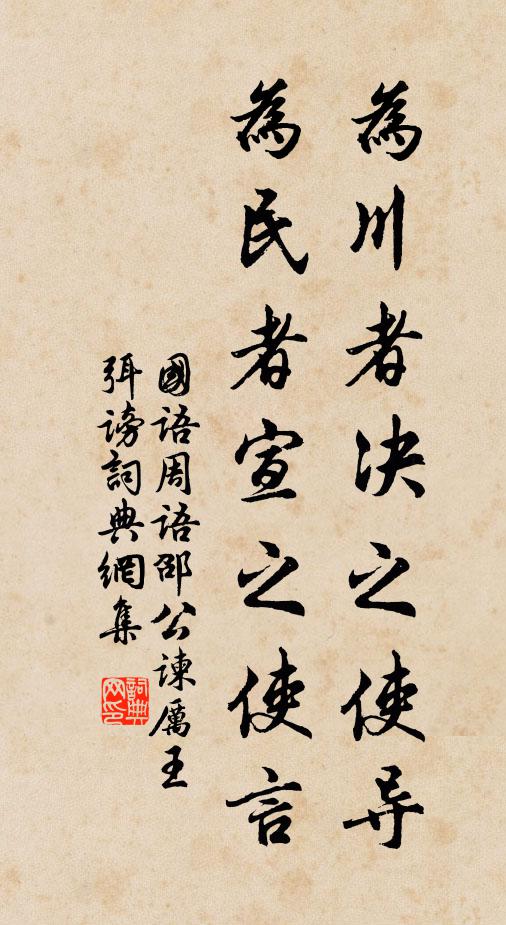 為川者決之使导
為民者宣之使言
國語周語邵公諫厲王
弭謗詞典網集
詞典网印